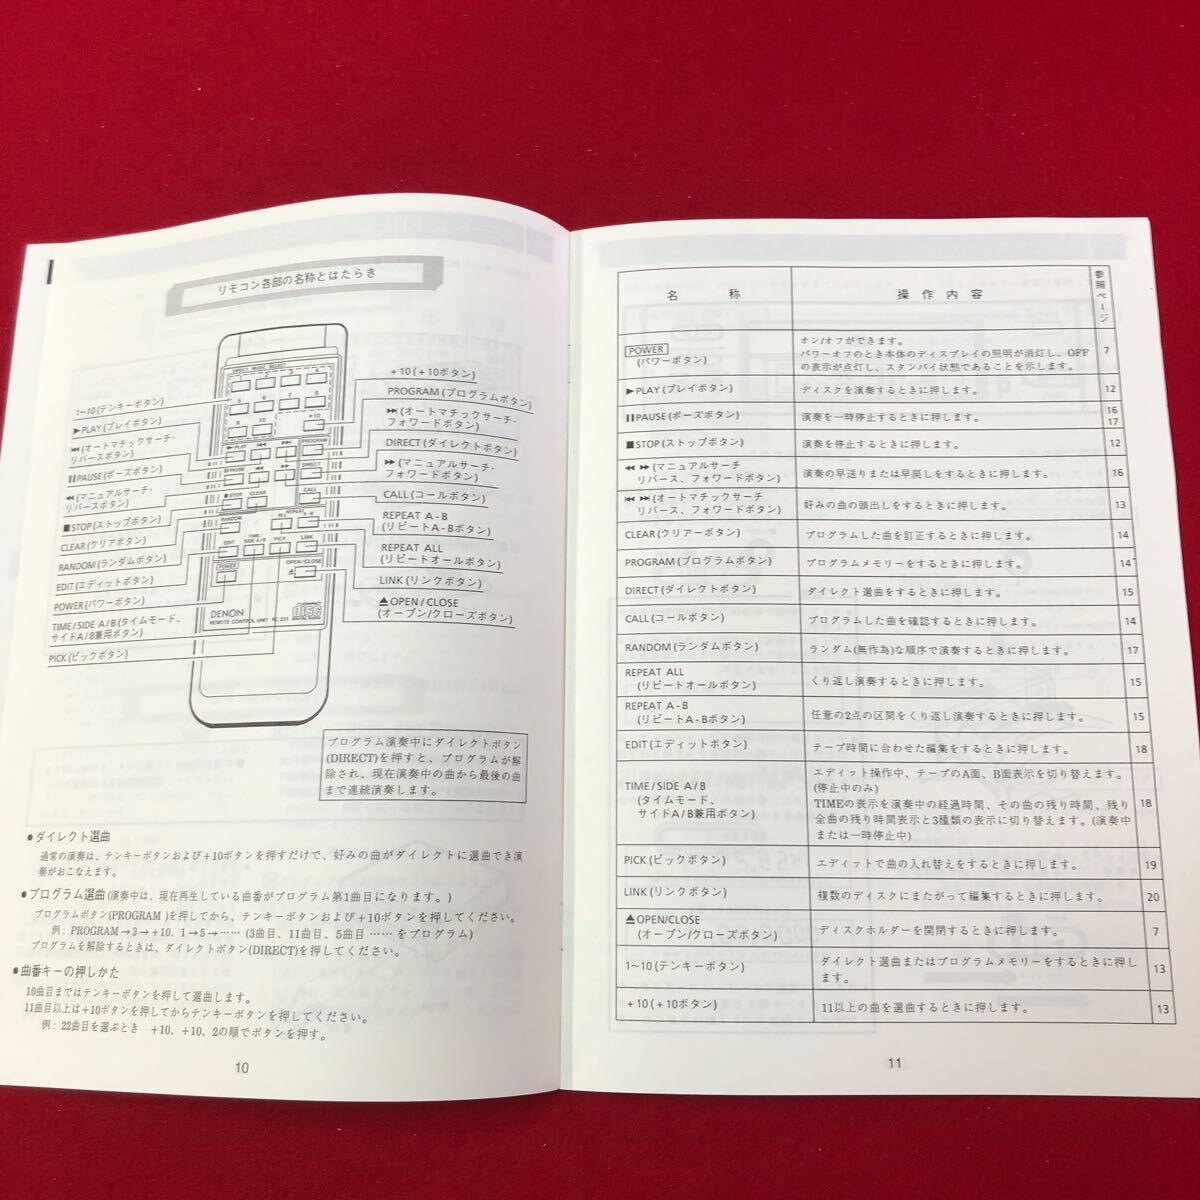 リモコン各部の名称とはたらき
1~10(テンキーボタン)
▶PLAY(プレイボタン)
⏮(オートマチックサーチ・
リバースボタン)
❚❚PAUSE(ポーズボタン)
◀◀(マニュアルサーチ・
リバースボタン)
■STOP(ストップボタン)
CLEAR(クリアボタン)
RANDOM(ランダムボタン)
EDIT(エディットボタン)
POWER(パワーボタン)
TIME/SIDE A/B(タイムモード、
サイドA/B兼用ボタン)
PICK(ピックボタン)
DIRECT MUSIC SELECT
1 2 3 4
5 6 7 8
9 10 +10
▶PLAY ⏮ ⏭ PROGRAM
❚❚PAUSE ◀◀ ▶▶ DIRECT
■STOP CLEAR CALL
RANDOM REPEAT ALL A-B
EDIT TIME/SIDE A/B PICK LINK
POWER OPEN/CLOSE
DENON
REMOTE CONTROL UNIT RC-233
COMPACT disc DIGITAL AUDIO
+10(+10ボタン)
PROGRAM(プログラムボタン)
⏭(オートマチックサーチ・
フォワードボタン)
DIRECT(ダイレクトボタン)
▶▶(マニュアルサーチ・
フォワードボタン)
CALL(コールボタン)
REPEAT A-B
(リピートA-Bボタン)
REPEAT ALL
(リピートオールボタン)
LINK(リンクボタン)
⏏OPEN/CLOSE
(オープン/クローズボタン)
プログラム演奏中にダイレクトボタン
(DIRECT)を押すと、プログラムが解
除され、現在演奏中の曲から最後の曲
まで連続演奏します。
●ダイレクト選曲
通常の演奏は、テンキーボタンおよび+10ボタンを押すだけで、好みの曲がダイレクトに選曲でき演
奏がおこなえます。
●プログラム選曲(演奏中は、現在再生している曲番がプログラム第1曲目になります。)
プログラムボタン(PROGRAM)を押してから、テンキーボタンおよび+10ボタンを押してください。
例: PROGRAM→3→+10、1→5→…… (3曲目、11曲目、5曲目 …… をプログラム)
プログラムを解除するときは、ダイレクトボタン(DIRECT)を押してください。
●曲番キーの押しかた
10曲目まではテンキーボタンを押して選曲します。
11曲目以上は+10ボタンを押してからテンキーボタンを押してください。
例: 22曲目を選ぶとき +10、+10、2の順でボタンを押す。
10
名称 操作内容 参照ページ
POWER
(パワーボタン)
オン/オフができます。
パワーオフのとき本体のディスプレイの照明が消灯し、OFF
の表示が点灯し、スタンバイ状態であることを示します。
7
▶PLAY(プレイボタン) ディスクを演奏するときに押します。 12
❚❚PAUSE(ポーズボタン) 演奏を一時停止するときに押します。 16
17
■STOP(ストップボタン) 演奏を停止するときに押します。 12
◀◀ ▶▶(マニュアルサーチ
リバース、フォワードボタン) 演奏の早送りまたは早戻しをするときに押します。 16
⏮ ⏭(オートマチックサーチ
リバース、フォワードボタン) 好みの曲の頭出しをするときに押します。 13
CLEAR(クリアーボタン) プログラムした曲を訂正するときに押します。 14
PROGRAM(プログラムボタン) プログラムメモリーをするときに押します。 14
DIRECT(ダイレクトボタン) ダイレクト選曲をするときに押します。 15
CALL(コールボタン) プログラムした曲を確認するときに押します。 14
RANDOM(ランダムボタン) ランダム(無作為)な順序で演奏するときに押します。 17
REPEAT ALL
(リピートオールボタン) くり返し演奏するときに押します。 15
REPEAT A-B
(リピートA-Bボタン) 任意の2点の区間をくり返し演奏するときに押します。 15
EDIT(エディットボタン) テープ時間に合わせた編集をするときに押します。 18
TIME/SIDE A/B
(タイムモード、
サイドA/B兼用ボタン)
エディット操作中、テープのA面、B面表示を切り替えます。
(停止中のみ)
TIMEの表示を演奏中の経過時間、その曲の残り時間、残り
全曲の残り時間表示と3種類の表示に切り替えます。(演奏中
または一時停止中)
18
PICK(ピックボタン) エディットで曲の入れ替えをするときに押します。 19
LINK(リンクボタン) 複数のディスクにまたがって編集するときに押します。 20
⏏OPEN/CLOSE
(オープン/クローズボタン) ディスクホルダーを開閉するときに押します。 7
1~10(テンキーボタン) ダイレクト選曲またはプログラムメモリーをするときに押し
ます。 13
+10(+10ボタン) 11以上の曲を選曲するときに押します。 13
11